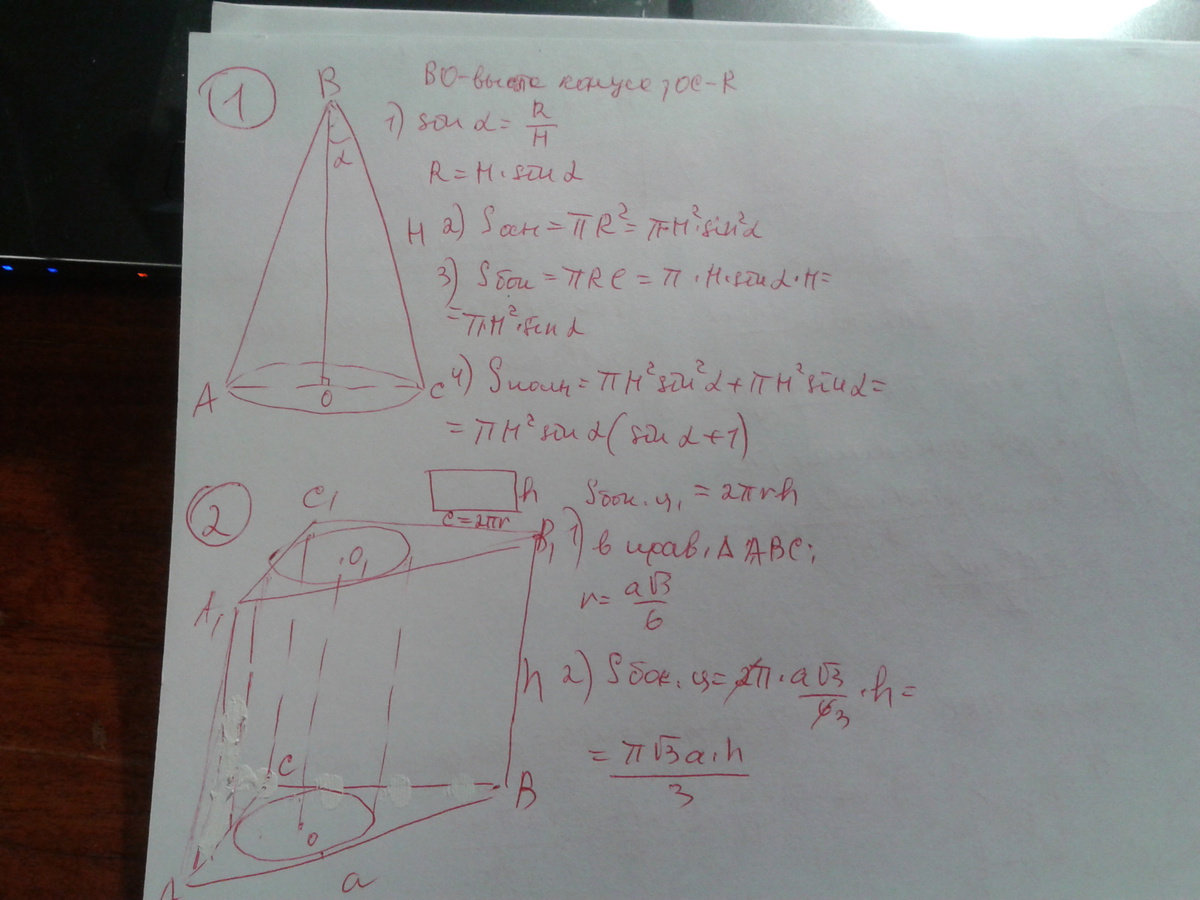 1
B
BO-высота конуса, OC-R
α
1) sin α = R/H
R = H·sin α
H
2) Sосн = πR² = πH²·sin²α
3) Sбок = πRℓ = π·H·sin α·H=
= πH²·sin α
A
O
C
4) Sполн = πH²sin²α + πH²sin α =
= πH² sin α (sin α + 1)
2
C₁
h
C=2πr
Sбок.ц. = 2πrh
O₁
B₁
1) в прав. Δ ABC:
A₁
r = a√3/6
h
2) Sбок.ц = 2π·a√3/6 3·h =
= π√3a·h/3
C
B
O
A
a